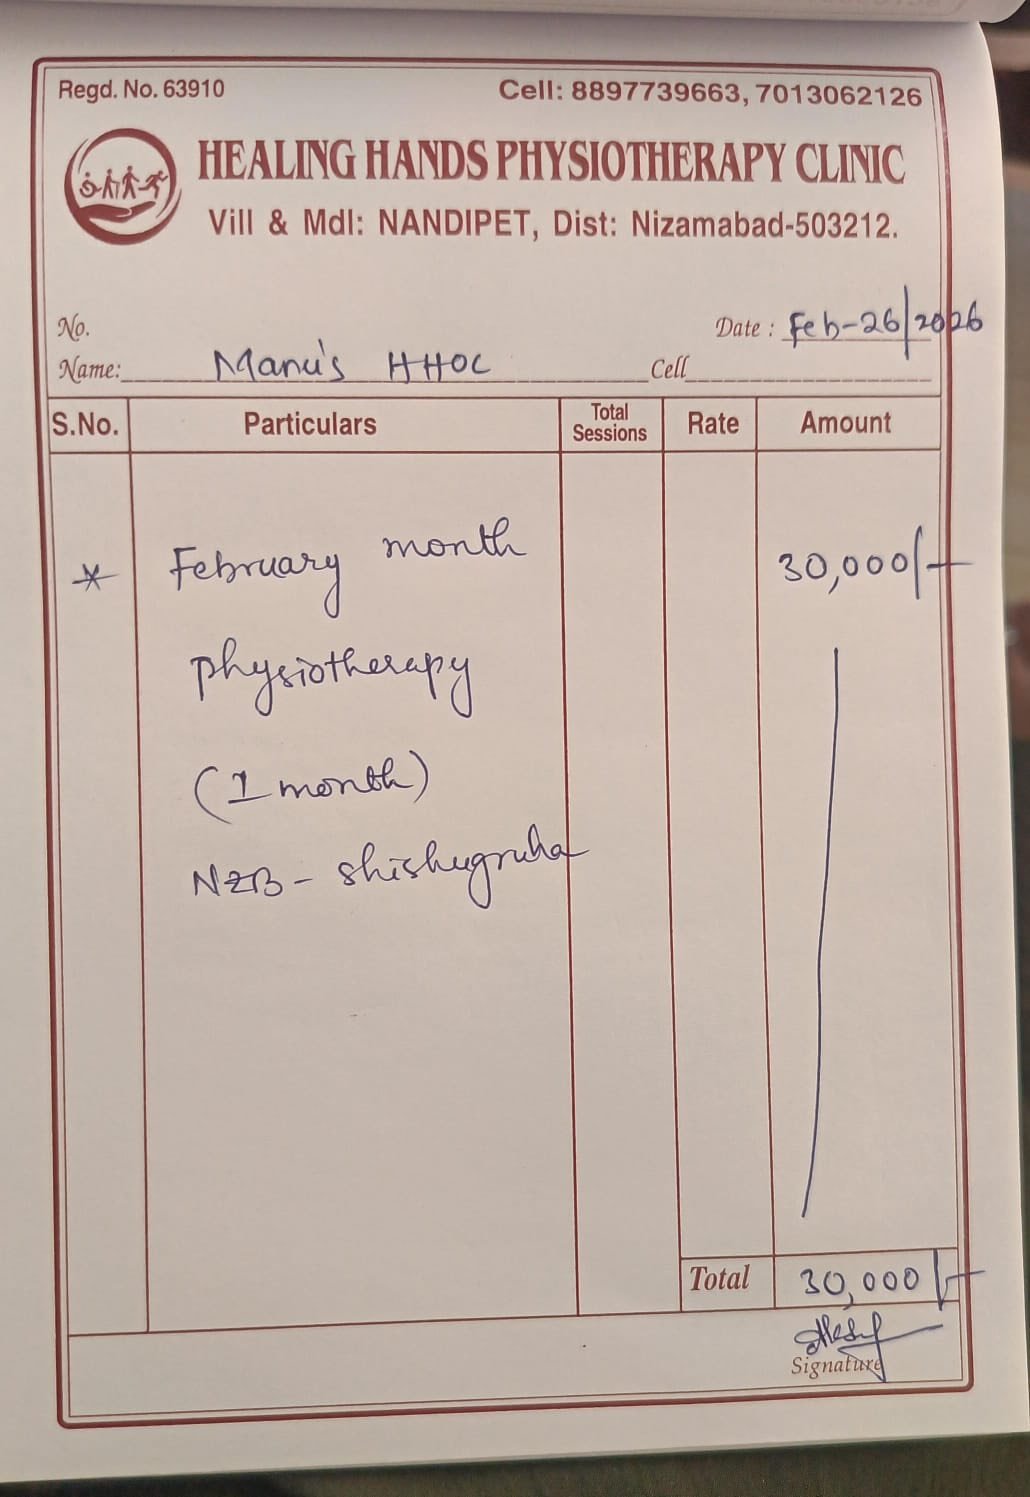 Regd. No. 63910 Cell: 8897739663, 7013062126
HEALING HANDS PHYSIOTHERAPY CLINIC
Vill & Mdl: NANDIPET, Dist: Nizamabad-503212.
No. Date : Feb-26/2026
Name: Manu's HHOC Cell
S.No. Particulars Total Sessions Rate Amount
* February month 30,000/-
physiotherapy
(1 month)
NZB - shishugruha
Total 30,000/-
Signature